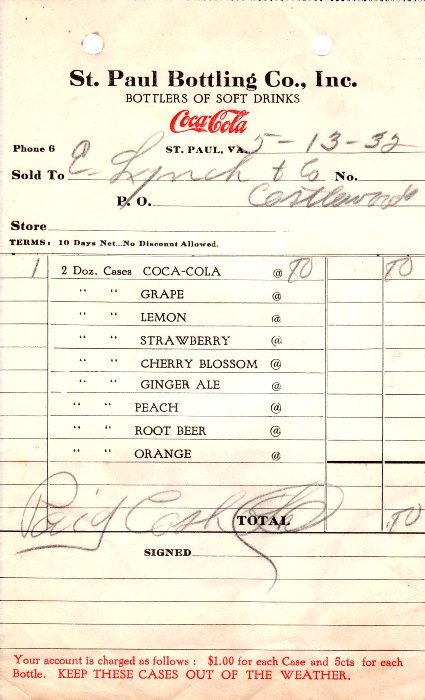 St. Paul Bottling Co., Inc.
BOTTLERS OF SOFT DRINKS
Coca-Cola
Phone 6 ST. PAUL, VA. 5-13-32
Sold To E. Lynch & Co No.
P. O. Castlewood
Store
TERMS: 10 Days Net...No Discount Allowed.
1 2 Doz. Cases COCA-COLA @ 80 80
" " GRAPE @
" " LEMON @
" " STRAWBERRY @
" " CHERRY BLOSSOM @
" " GINGER ALE @
" " PEACH @
" " ROOT BEER @
" " ORANGE @
Paid Cash TOTAL .80
SIGNED
Your account is charged as follows : $1.00 for each Case and 5cts for each
Bottle. KEEP THESE CASES OUT OF THE WEATHER.